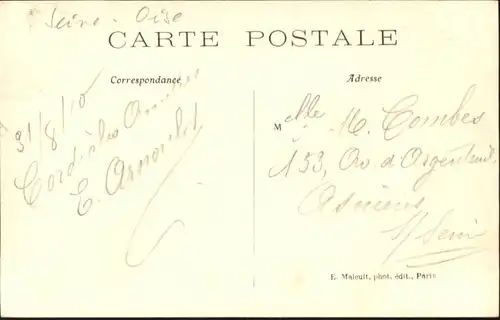 Seine - Oise
CARTE POSTALE
Correspondance
31/8/10
Cordiales Amitiés
E. Arnoult
Adresse
Melle M. Combes
153, Av. d'Argenteuil
Asnières
s/ Seine
E. Maleuit, phot. édit., Paris